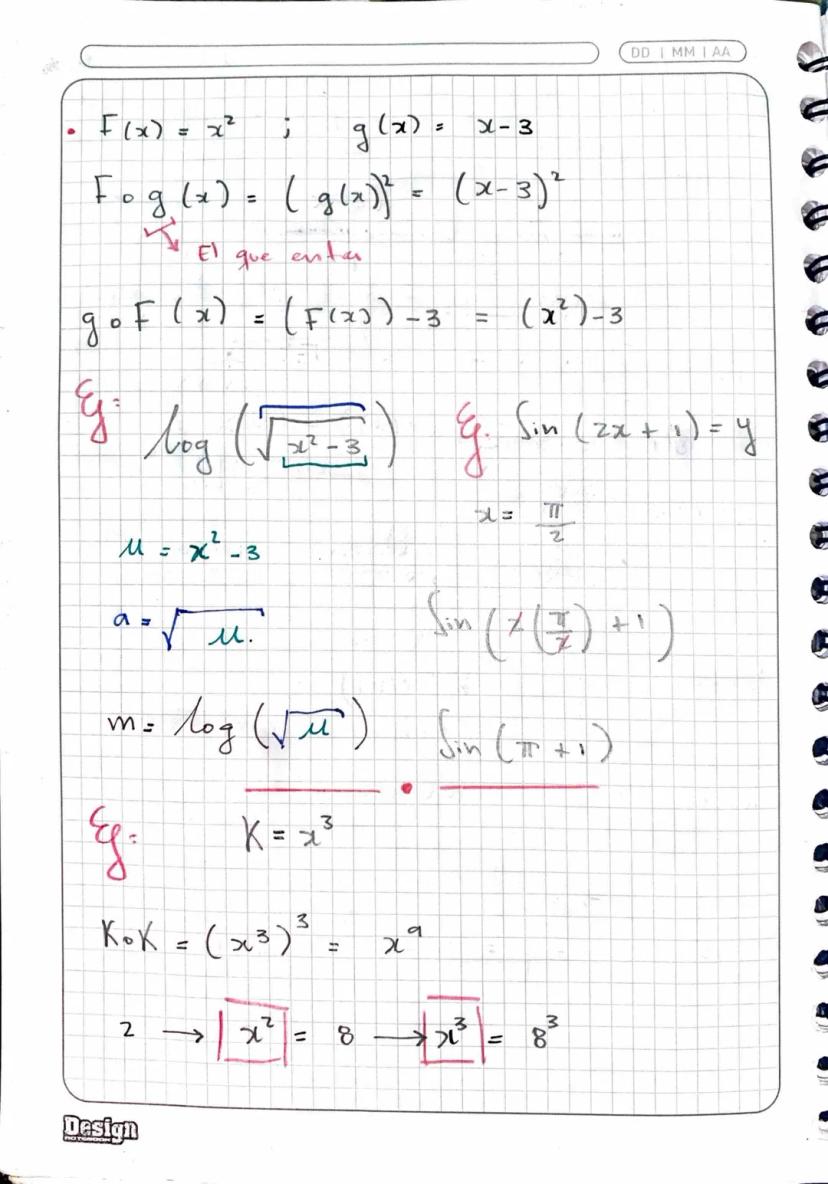 DD | MM | AA
• F(x) = x² ; g(x) = x-3
F∘g(x) = (g(x))² = (x-3)²
El que entra
g∘F(x) = (F(x))-3 = (x²)-3
Eg: log(√(x²-3))
Eg. Sin(2x+1) = y
x = π/2
u = x²-3
a = √u.
Sin(2(π/2)+1)
m = log(√u)
Sin(π+1)
Eg: K = x³
K∘K = (x³)³ = x⁹
2 → x² = 8 → x³ = 8³
Design